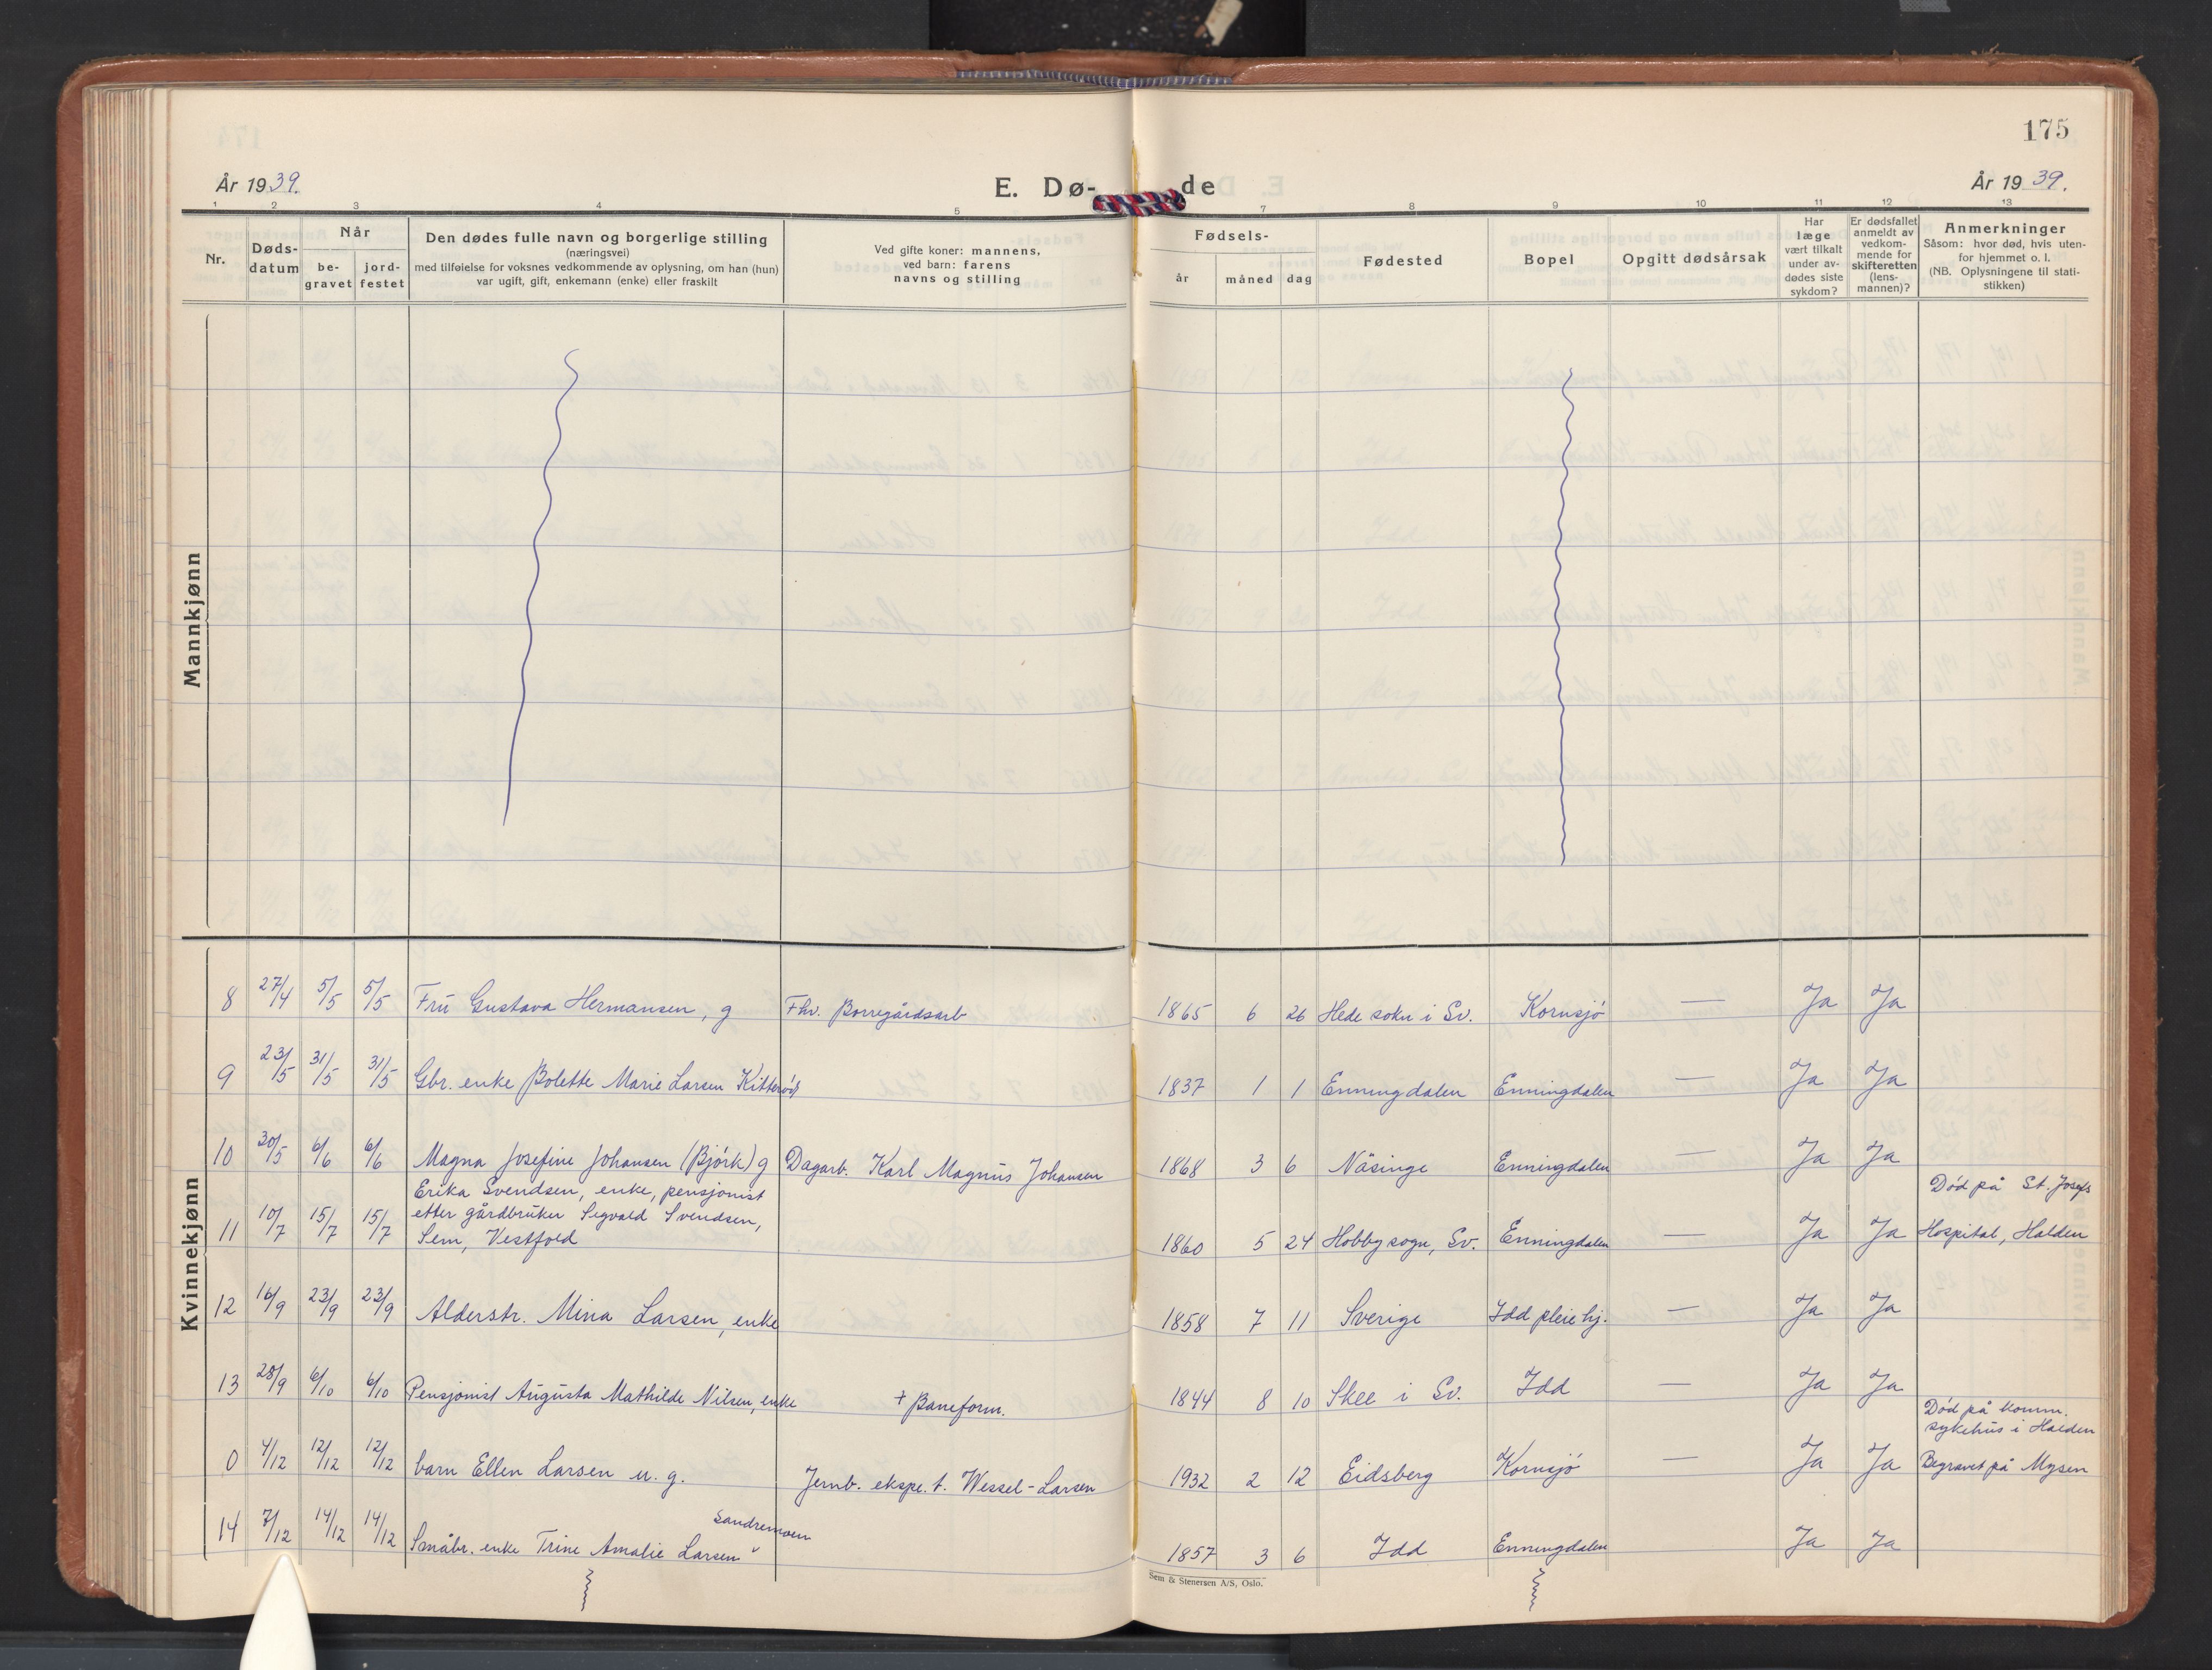 175
År 1939.
E. Dø-
de
År 1939.
1 2 3 4 5 7 8 9 10 11 12 13
Nr.
Døds-
datum
Når
be-
gravet
jord-
festet
Den dødes fulle navn og borgerlige stilling
(næringsvei)
med tilføielse for voksnes vedkommende av oplysning, om han (hun)
var ugift, gift, enkemann (enke) eller fraskilt
Ved gifte koner: mannens,
ved barn: farens
navns og stilling
Fødsels-
år måned dag
Fødested
Bopel
Opgitt dødsårsak
Har
læge
vært tilkalt
under av-
dødes siste
sykdom?
Er dødsfallet
anmeldt av
vedkom-
mende for
skifteretten
(lens-
mannen)?
Anmerkninger
Såsom: hvor død, hvis uten-
for hjemmet o. l.
(NB. Oplysningene til stati-
stikken)
Mannkjønn
Kvinnekjønn
8 27/4 5/5 5/5 Fru Gustava Hermansen, g Fhv. Borregårdsarb 1865 6 26 Hede sokn i Sv. Kornsjø — Ja Ja
9 23/5 31/5 31/5 Gbr. enke Bolette Marie Larsen Kitterød 1837 1 1 Enningdalen Enningdalen — Ja Ja
10 30/5 6/6 6/6 Magna Josefine Johansen (Bjørk) g Dagarb. Karl Magnus Johansen 1868 3 6 Näsinge Enningdalen — Ja Ja
Erika Svendsen, enke, pensjonist Død på St. Josefs
11 10/7 15/7 15/7 etter gårdbruker Segvald Svendsen,
Sem, Vestfold 1860 5 24 Hobby sogn, Sv. Enningdalen — Ja Ja Hospital, Halden
12 16/9 23/9 23/9 Alderstr. Mina Larsen, enke 1858 7 11 Sverige Idd pleiehj. — Ja Ja
13 28/9 6/10 6/10 Pensjonist Augusta Mathilde Nilsen, enke + Baneform. 1844 8 10 Skee i Sv. Idd — Ja Ja
Død på komm.
sykehus i Halden
0 4/12 12/12 12/12 barn Ellen Larsen u. g. Jernb. eksp. t. Wessel-Larsen 1932 2 12 Eidsberg Kornsjø — Ja Ja Begravet på Mysen
Sandremoen
14 7/12 14/12 14/12 Småbr. enke Trine Amalie Larsen 1857 3 6 Idd Enningdalen Ja Ja
Sem & Stenersen A/S, Oslo.